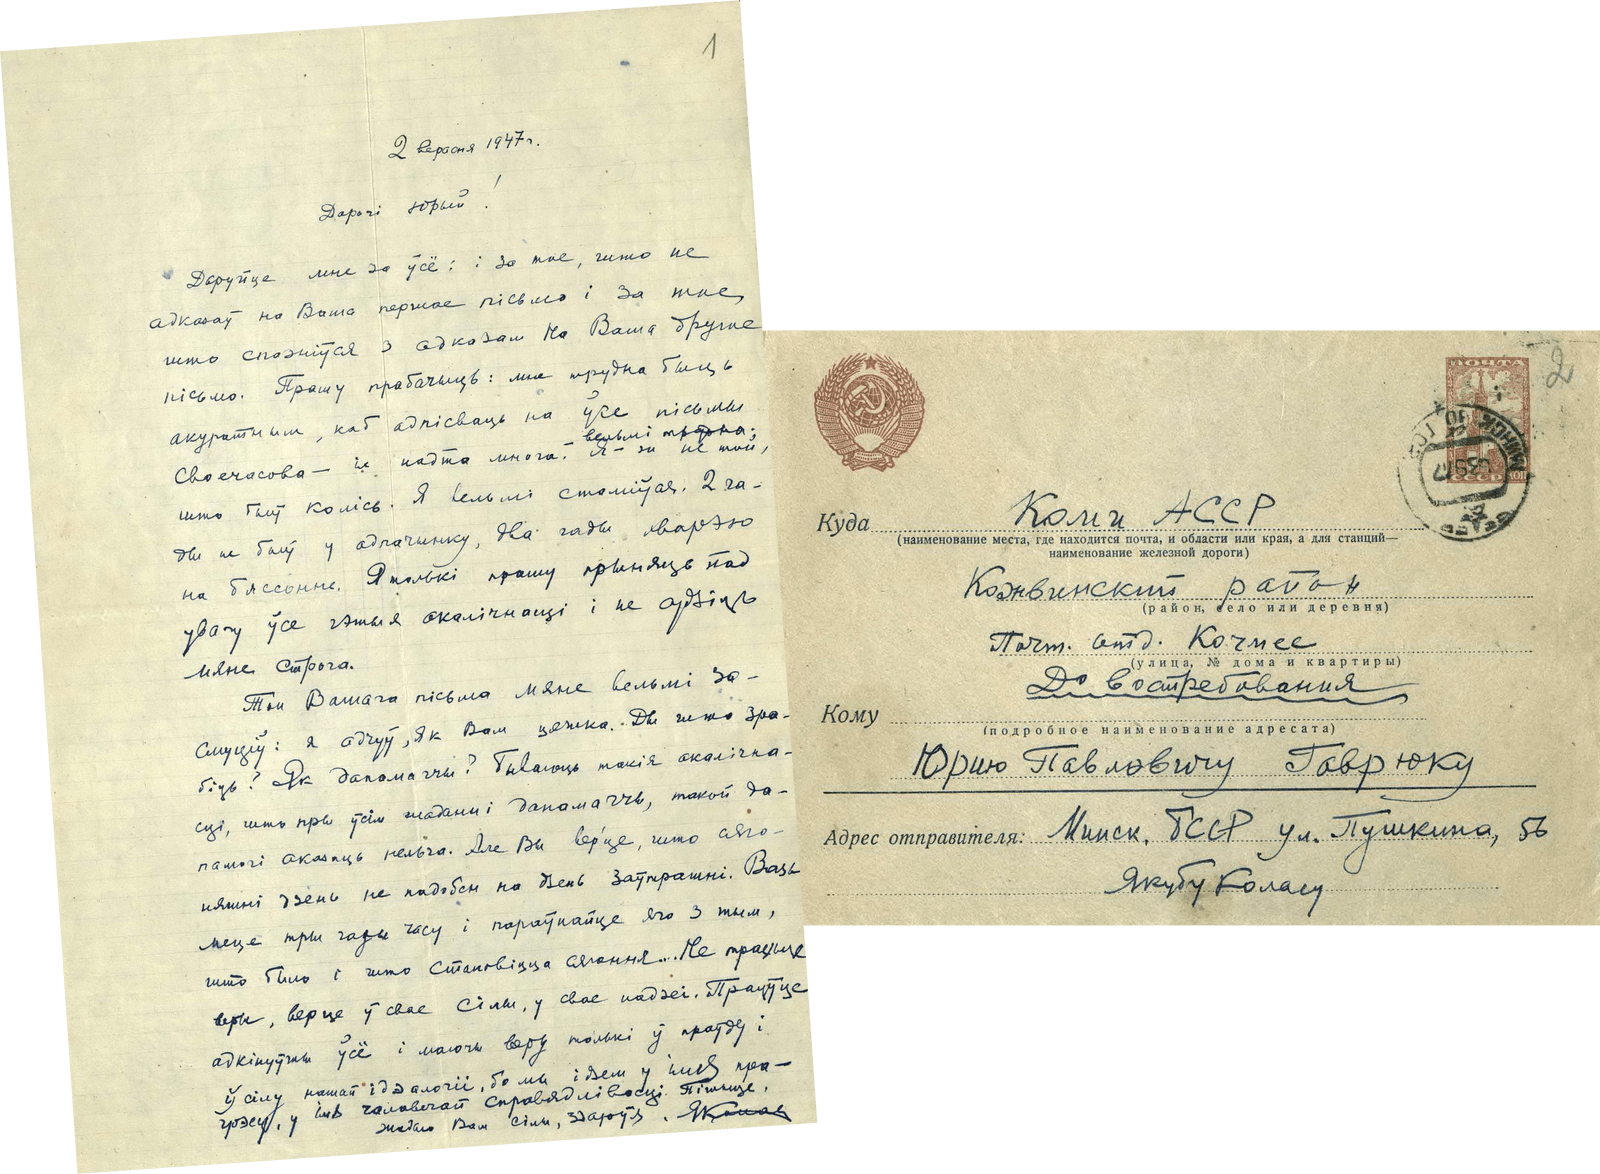 1
2 верасня 1947 г.
Дарагі Юрый!
Даруйце мне за ўсё: і за тое, што не
адказаў на Ваша першае пісьмо і за тое,
што спазніўся з адказам на Ваша другое
пісьмо. Прашу прабачыць: мне трудна быць
акуратным, каб адпісваць на ўсе пісьмы
своечасова — іх надта многа. Я — ўжо не той,
што быў колісь. Я вельмі стаміўся. 2 га-
ды не быў у адпачынку, два гады хварэю
на бяссонне. Я толькі прашу прыняць пад
увагу ўсе гэтыя акалічнасці і не судзіць
мяне строга.
Тон Вашага пісьма мяне вельмі за-
смуціў: я адчуў, як Вам цяжка. Ды што зра-
біць? Як дапамагчы? Бываюць такія акалічна-
сці, што пры ўсім жаданні дапамагчы, такой да-
памогі аказаць нельга. Але Вы верце, што сяго-
няшні дзень не падобен на дзень заўтрашні. Вазь-
меце тры гады часу і параўнайце яго з тым,
што было і што становіцца сягоння... Не трацьце
веры, верце ў свае сілы, у свае надзеі. Працуйце
адкінуўшы ўсё і маючы веру толькі ў праўду і
ў сілу нашай ідэалогіі, бо мы ідзем у імя пра-
грэсу, у імя чалавечай справядлівасці. Пішыце.
Жадаю Вам сілы, здароўя. Я Колас
2
ПОЧТА
СССР
Куда Коми АССР
(наименование места, где находится почта, и области или края, а для станций—
наименование железной дороги)
Кожвинский район
(район, село или деревня)
Почт. отд. Кочмес
(улица, № дома и квартиры)
До востребования
Кому
(подробное наименование адресата)
Юрию Павловичу Гаврюку
Адрес отправителя: Минск, БССР ул. Пушкина, 56
Якубу Коласу